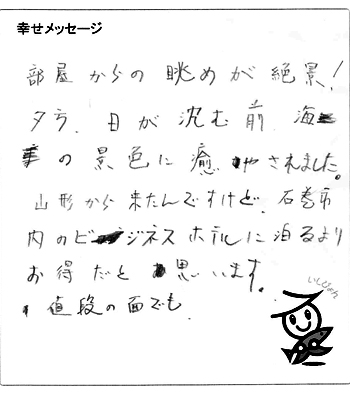 幸せメッセージ
部屋からの眺めが絶景!
夕方、日が沈む前、海
の景色に癒やされました。
山形から来たんですけど、石巻市
内のビジネスホテルに泊るより
お得だと思います。
値段の面でも
いしぴょん